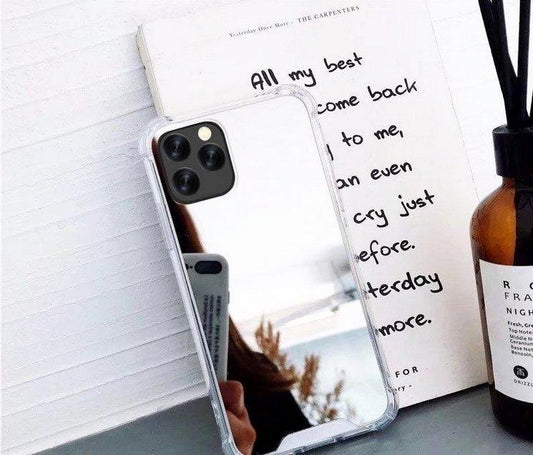 Yesterday Once More - THE CARPENTERS
All my best
come back
to me,
an even
cry just
efore.
terday
more.
FOR
ry -
R O
FRA
NIGH
Fresh, Gre
Top Note
Middle Not
Geranium
Base Not
Benzoin,
DRIZZL